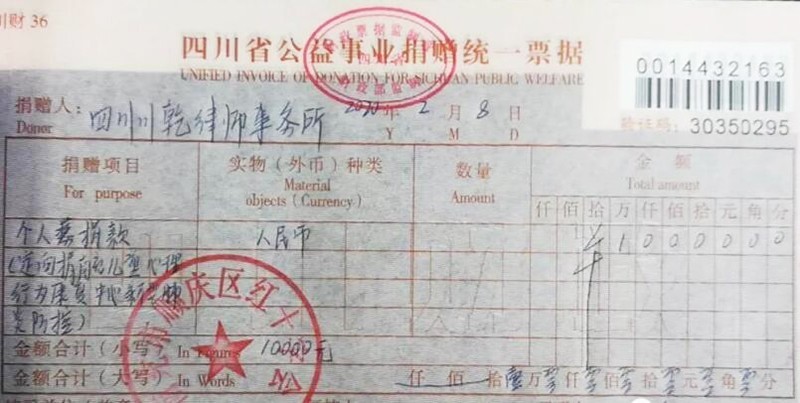 川财 36
四川省公益事业捐赠统一票据
UNIFIED INVOICE OF DONATION FOR SICHUAN PUBLIC WELFARE
0014432163
验证码：30350295
捐赠人：四川川乾律师事务所 2020 年 2 月 8 日
Donor Y M D
捐赠项目 实物（外币）种类 数量 金额
For purpose Material objects (Currency) Amount Total amount
仟 佰 拾 万 仟 佰 拾 元 角 分
个人募捐款 人民币 ¥ 1 0 0 0 0 0 0
（定向捐
行为康复中心新
炎防控）
金额合计（小写）In Figures 10000元
金额合计（大写）In Words 仟 佰 拾 壹 万 零 仟 零 佰 零 拾 零 元 零 角 零 分
顺庆区红十